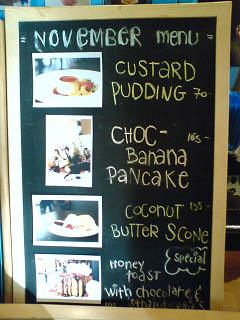 = NOVEMBER menu =
CUSTARD
PUDDING 70.-
CHOC- 165.-
Banana
Pancake
COCONUT 135.-
BUTTER SCONE
special
Honey
Toast
with chocolate &